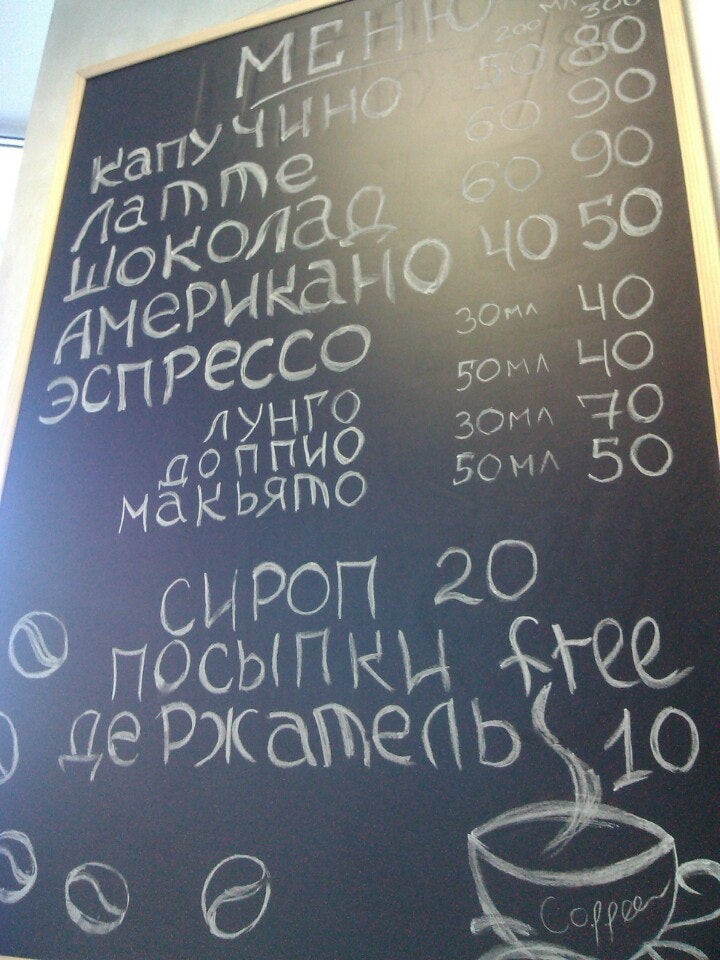 МЕНЮ 200 мл 300
капучино 50 80
латте 60 90
шоколад 60 90
американо 40 50
эспрессо 30мл 40
лунго 50мл 40
доппио 30мл 70
макьято 50мл 50
сироп 20
посыпки free
держатель 10
Coffee